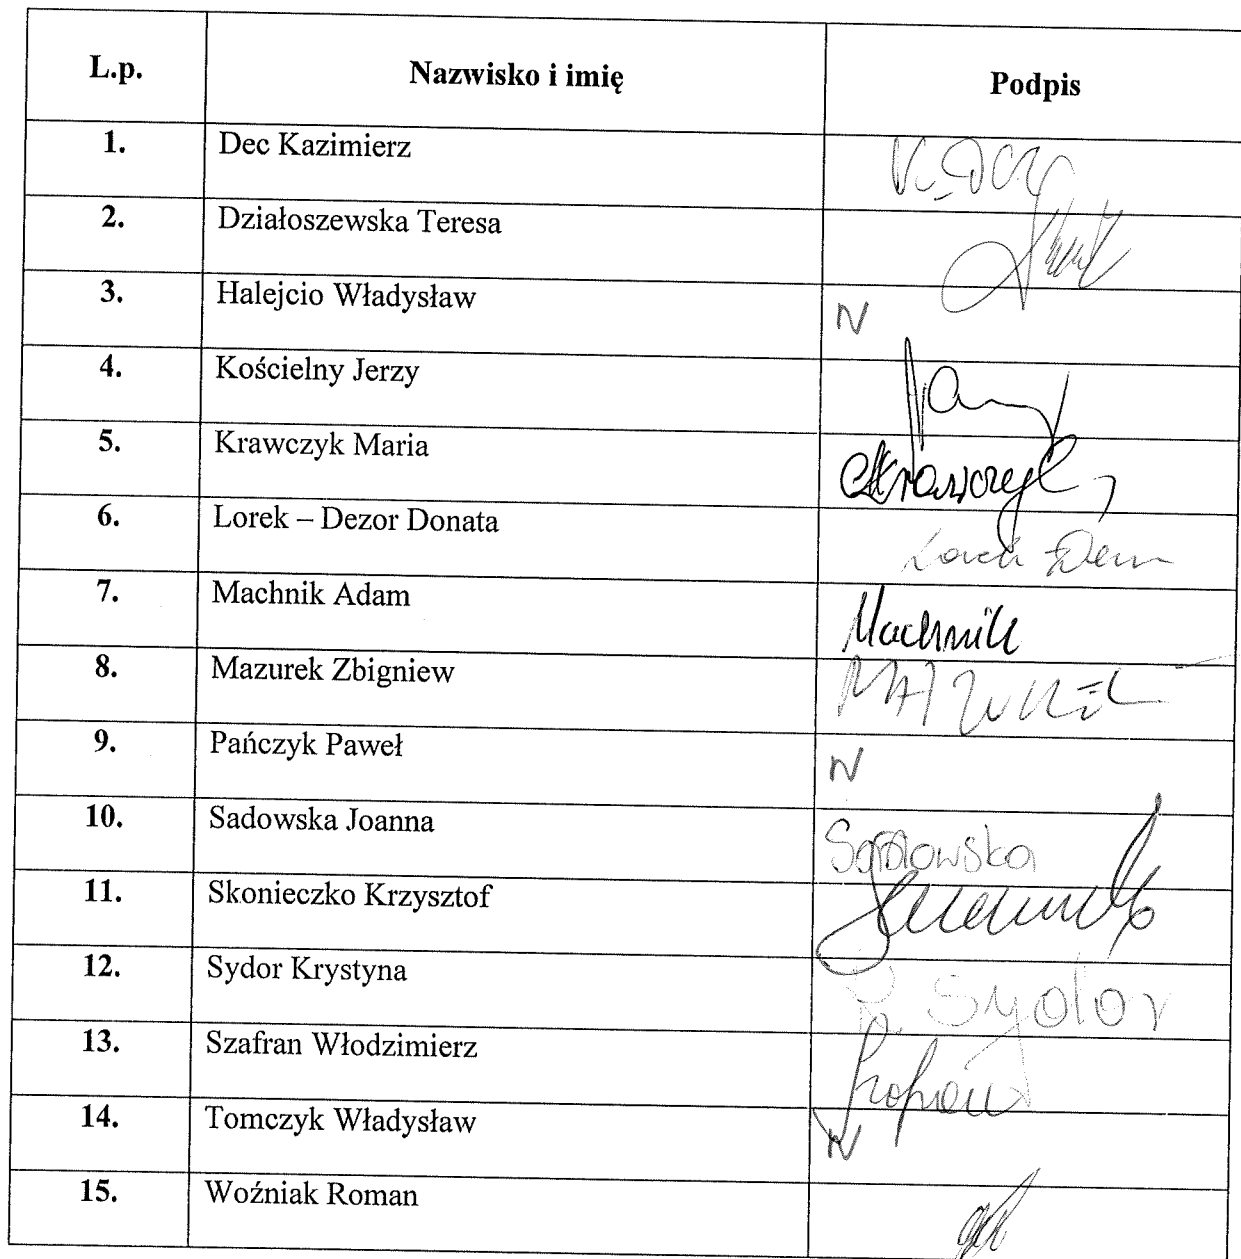 L.p. Nazwisko i imię Podpis
1. Dec Kazimierz
2. Działoszewska Teresa
3. Halejcio Władysław N
4. Kościelny Jerzy
5. Krawczyk Maria Krawczyk
6. Lorek – Dezor Donata
7. Machnik Adam Machnik
8. Mazurek Zbigniew MAZUREK
9. Pańczyk Paweł N
10. Sadowska Joanna Sadowska
11. Skonieczko Krzysztof
12. Sydor Krystyna Sydor
13. Szafran Włodzimierz
14. Tomczyk Władysław N
15. Woźniak Roman